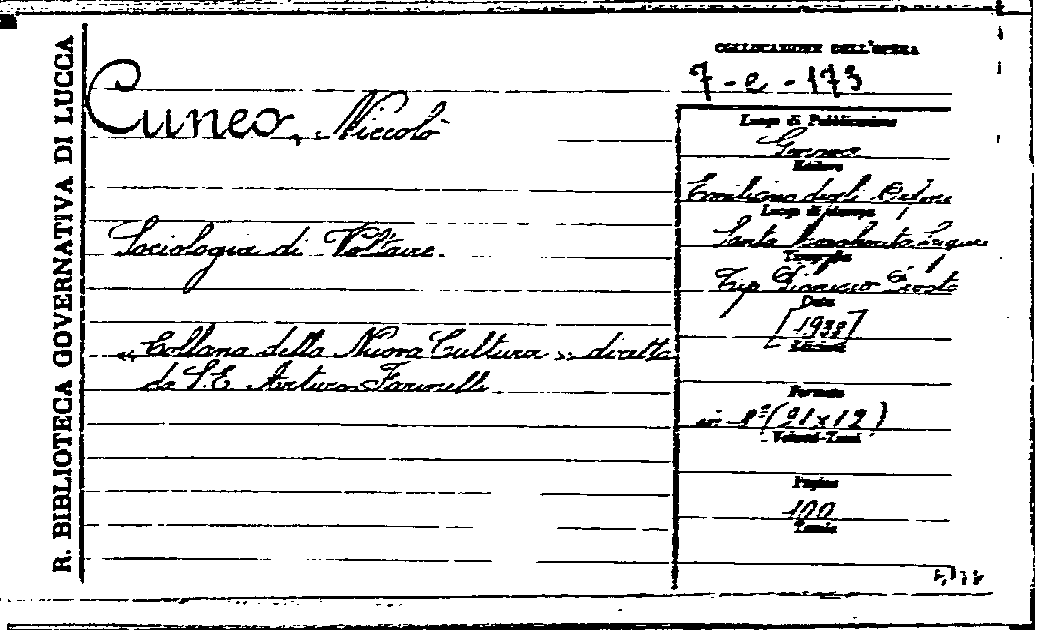 R. BIBLIOTECA GOVERNATIVA DI LUCCA
COLLOCAZIONE DELL'OPERA
7-e-173
Cuneo, Niccolò
Sociologia di Voltaire.
« Collana della Nuova Cultura » diretta
da S.E. Arturo Farinelli
Luogo di Pubblicazione
Genova
Editore
Emiliano degli Orfini
Luogo di stampa
Santa Margherita Ligure
Tipografia
Tip. Devoto
Data
[1938]
Edizioni
Formato
in-8º (21x12)
Volumi-Tomi
Pagine
100
Tavole